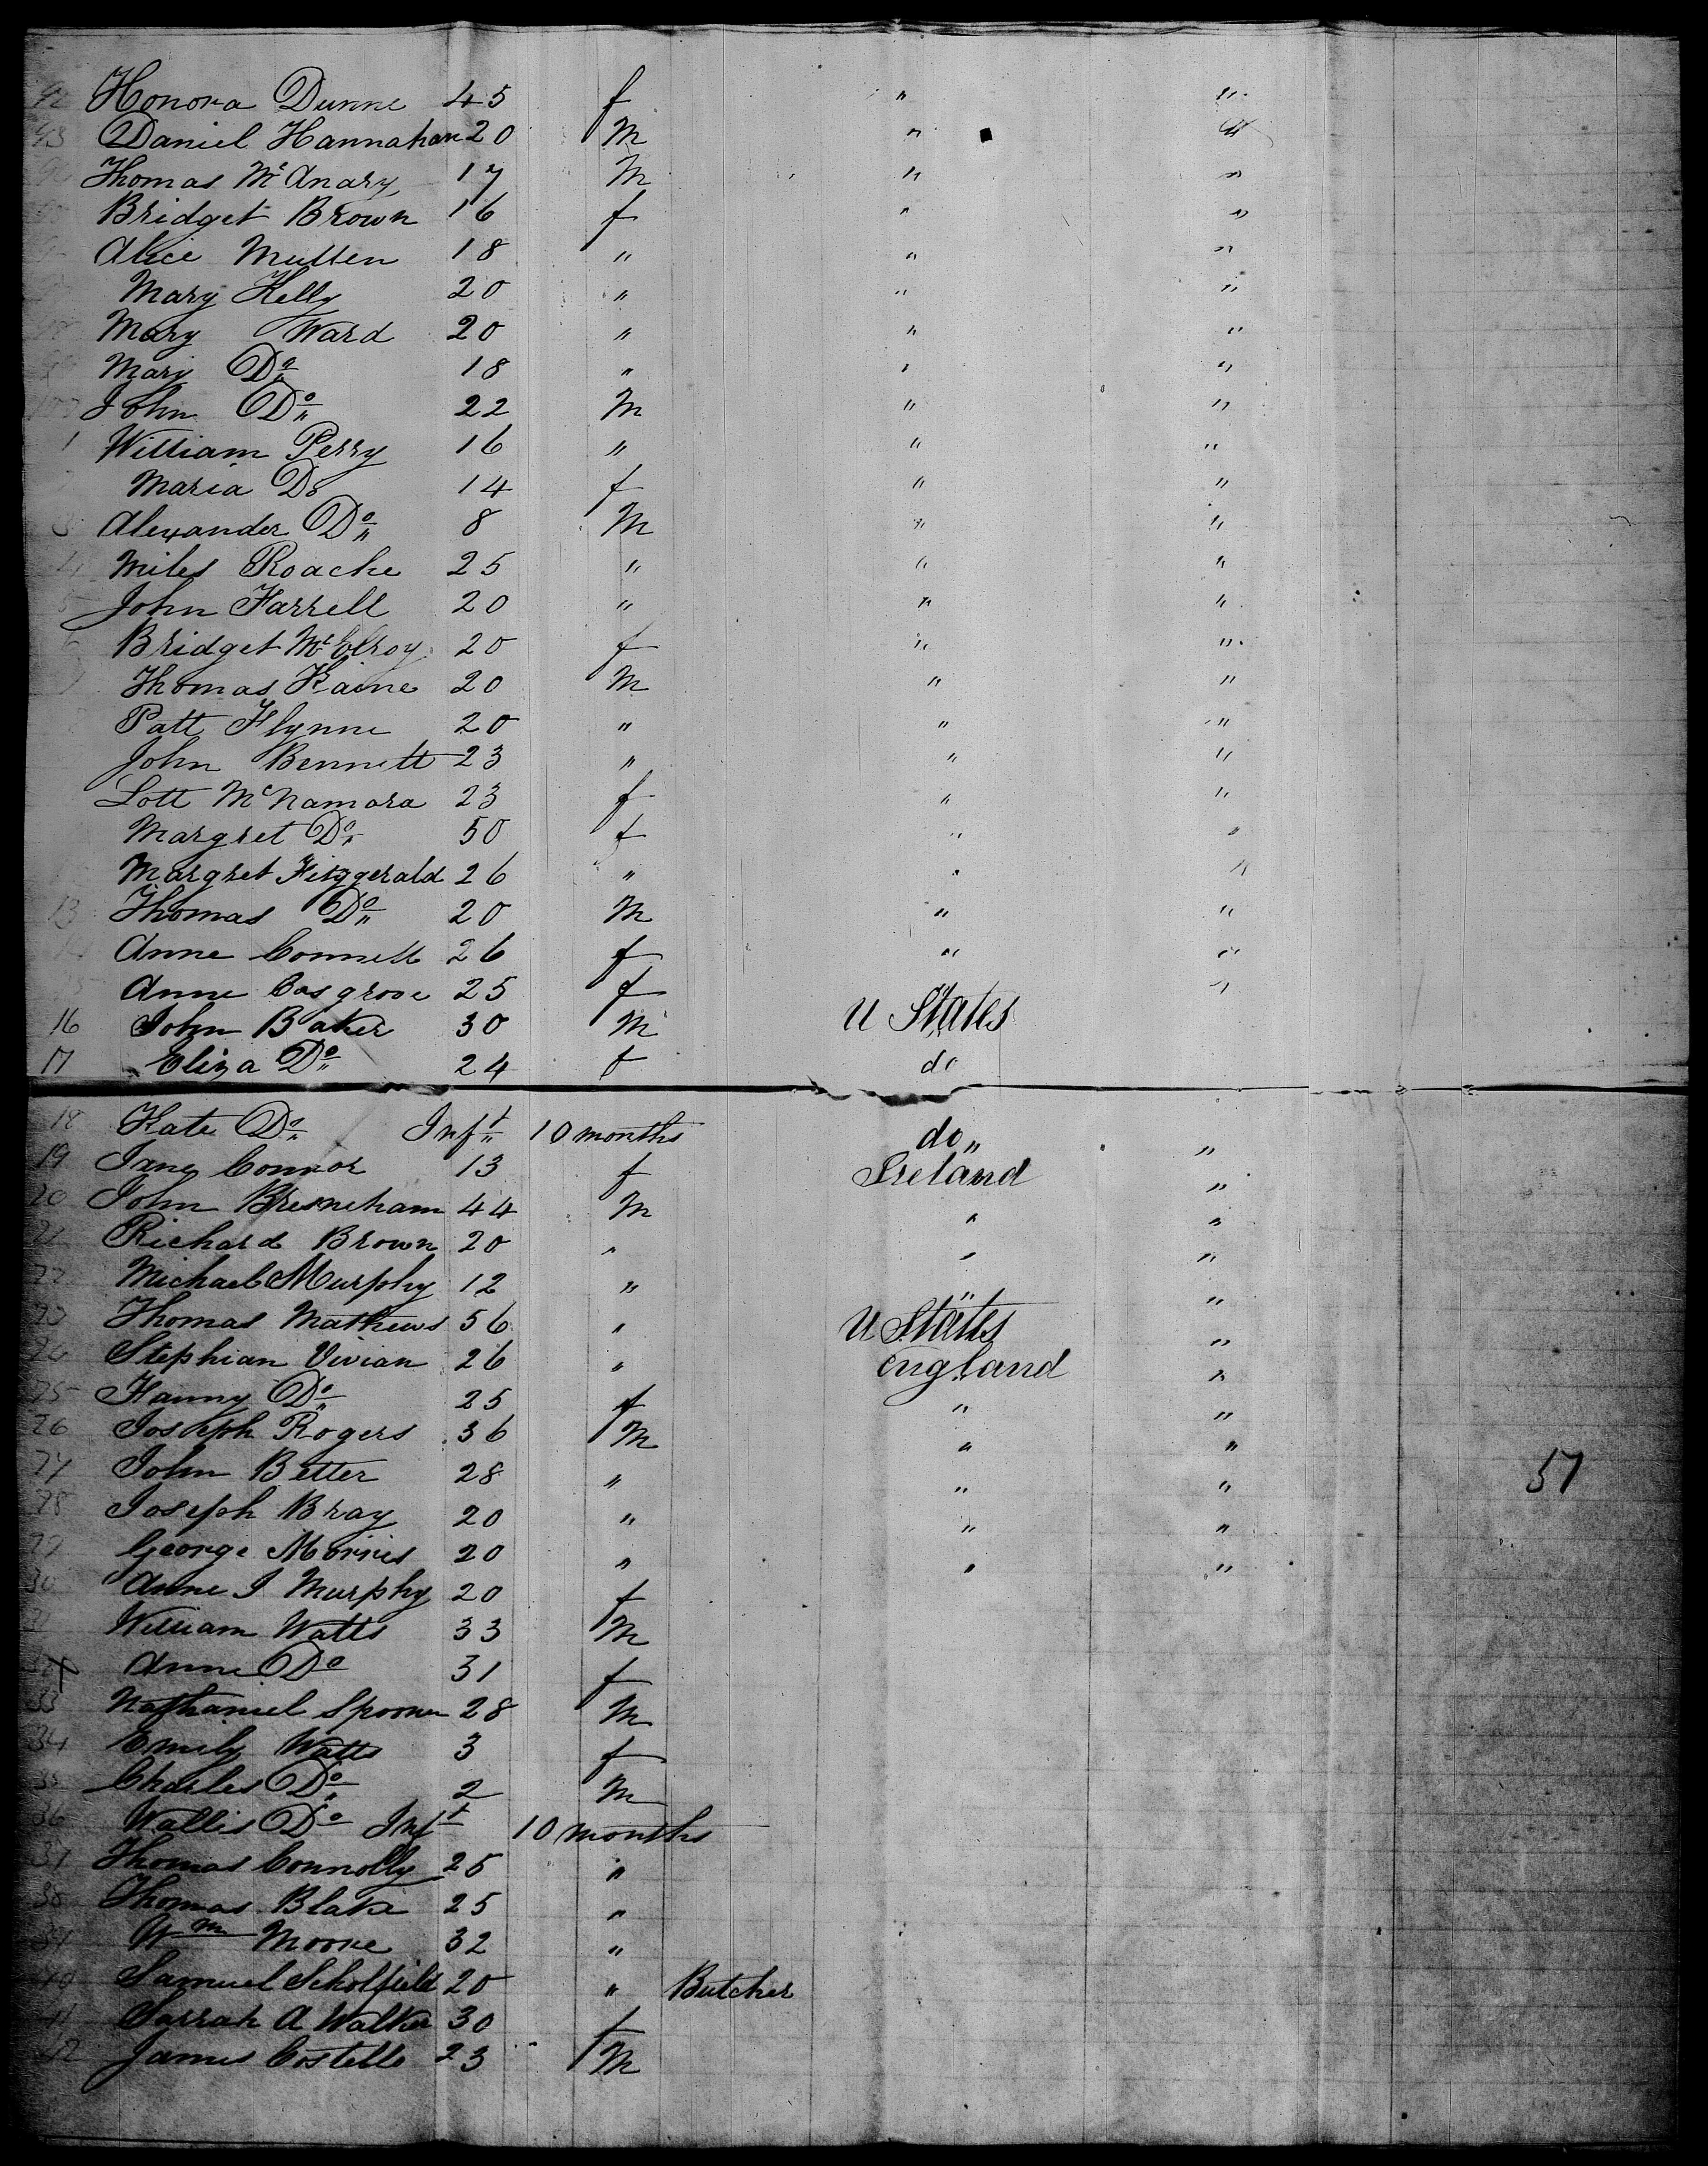 92 Honora Dunne 45 f " "
93 Daniel Hannahan 20 M " "
Thomas Mc Anary 17 M " "
Bridget Brown 16 f " "
Alice Mullen 18 " " "
Mary Kelly 20 " " "
Mary Ward 20 " " "
Mary Do 18 " " "
John Do 22 M " "
1 William Perry 16 " " "
Maria Do 14 f " "
3 Alexander Do 8 M " "
4 Miles Roache 25 " " "
5 John Farrell 20 " " "
6 Bridget McElroy 20 f " "
7 Thomas Kaine 20 M " "
Patt Flynne 20 " " "
John Bennett 23 " " "
Lott McNamara 23 f " "
Margret Do 50 f " "
Margret Fitzgerald 26 " " "
13 Thomas Do 20 M " "
14 Anne Connell 26 f " "
Anne Cosgrove 25 f " "
16 John Baker 30 M U States
17 Eliza Do 24 f do
18 Kate Do Inft 10 months do "
19 Jane Connor 13 f Ireland "
20 John Bresneham 44 M " "
21 Richard Brown 20 " " "
22 Michael Murphy 12 " " "
23 Thomas Mathews 56 " U States "
24 Stephian Vivian 26 " England "
25 Fanny Do 25 f " "
26 Joseph Rogers 36 M " "
27 John Better 28 " " "
28 Joseph Bray 20 " " "
29 George Morris 20 " " "
30 Anne J Murphy 20 f
31 William Watts 33 M
Anne Do 31 f
33 Nathaniel Spooner 28 M
34 Emily Watts 3 f
35 Charles Do 2 M
36 Wallis Do Inft 10 months
37 Thomas Connolly 25 "
38 Thomas Blake 25 "
39 Wm Moore 32 "
40 Samuel Scholfield 20 " Butcher
41 Sarrah A Walker 30 f
42 James Costello 23 M
57